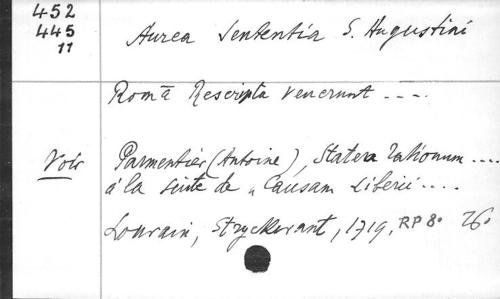 452
445
11
Aurea Sententia S. Augustini
Româ Rescripta venerunt ----
Voir Parmentier (Antoine), Statera rationum ....
à la suite de "Causam Liberii ....
Louvain, Stryckwant, 1719, RP 8° 76.